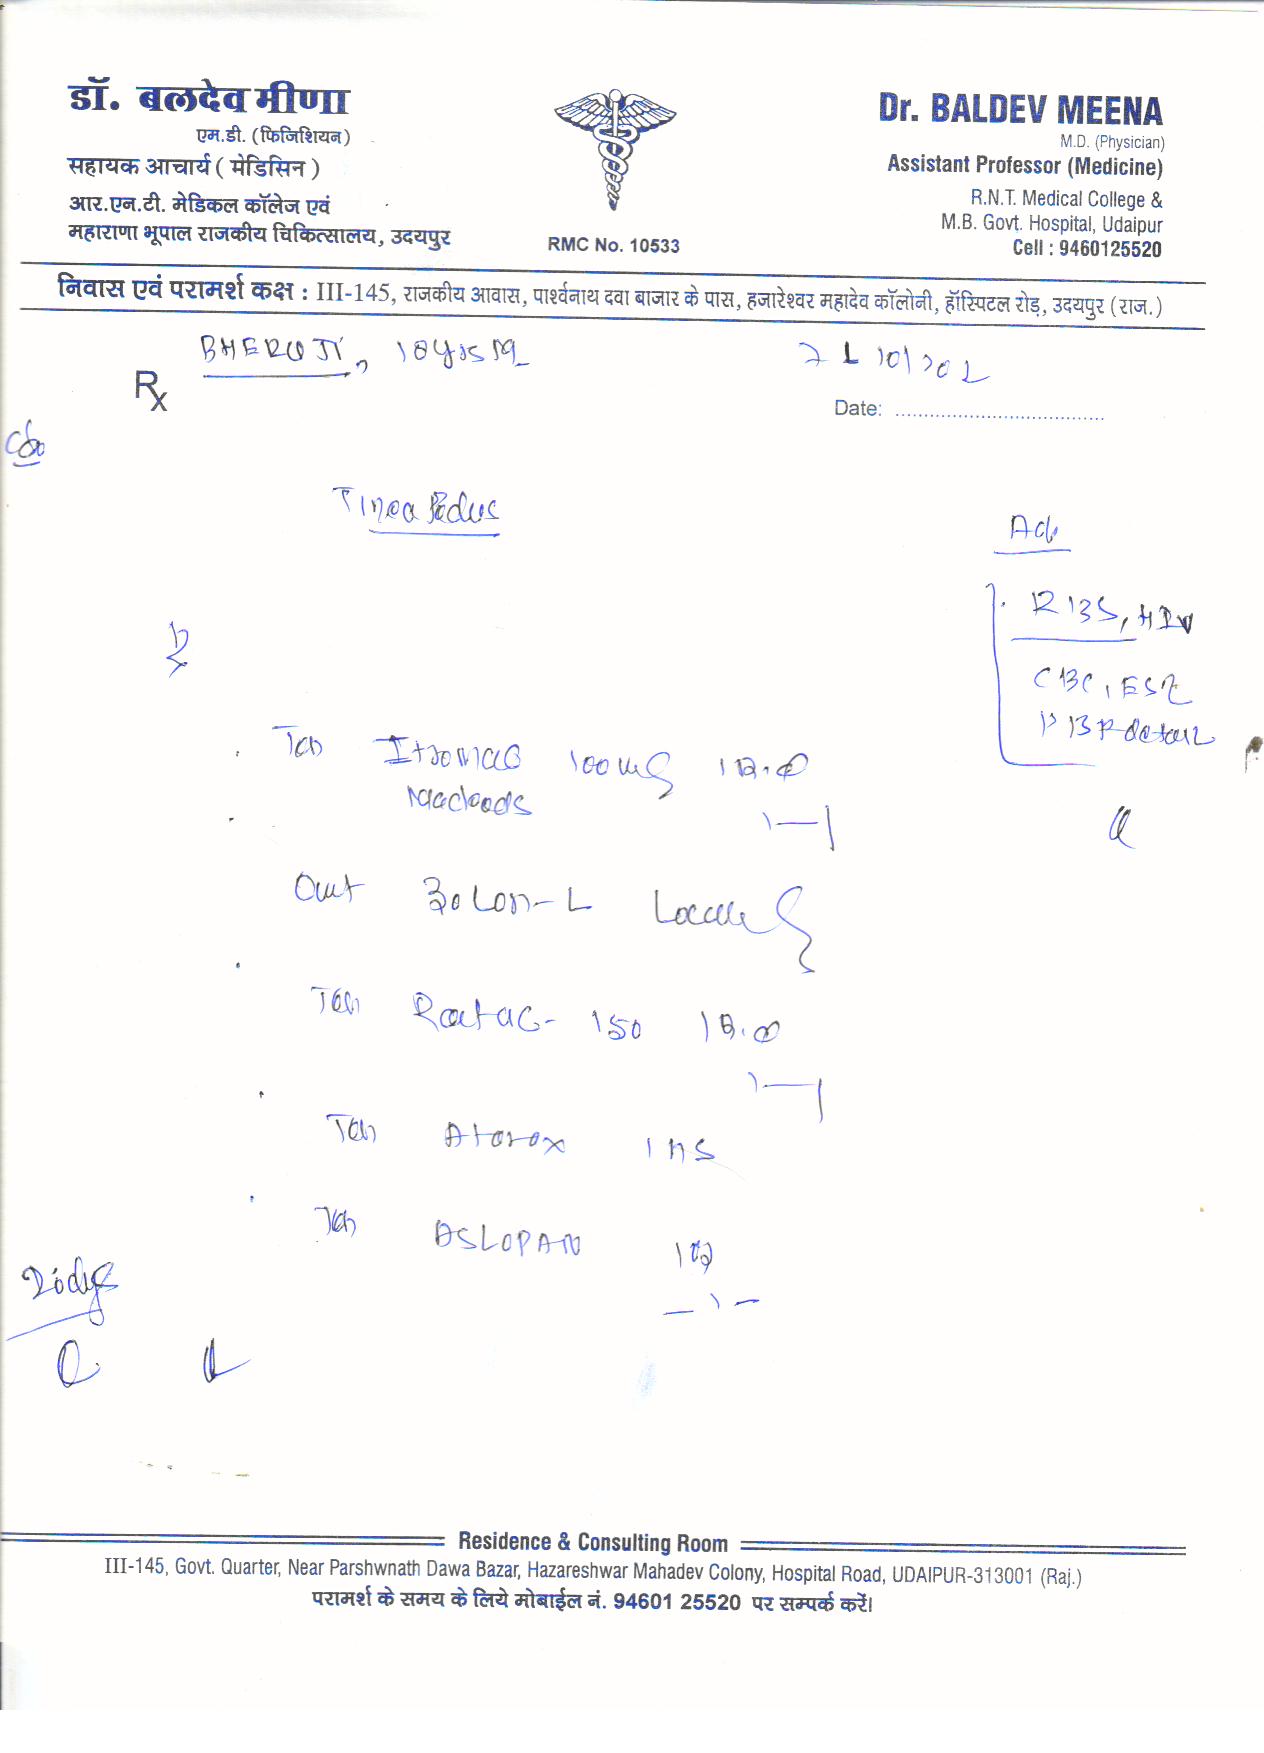 डॉ. बलदेव मीणा
एम.डी. (फिजिशियन)
सहायक आचार्य ( मेडिसिन )
आर.एन.टी. मेडिकल कॉलेज एवं
महाराणा भूपाल राजकीय चिकित्सालय, उदयपुर
RMC No. 10533
Dr. BALDEV MEENA
M.D. (Physician)
Assistant Professor (Medicine)
R.N.T. Medical College &
M.B. Govt. Hospital, Udaipur
Cell : 9460125520
निवास एवं परामर्श कक्ष : III-145, राजकीय आवास, पार्श्वनाथ दवा बाजार के पास, हजारेश्वर महादेव कॉलोनी, हॉस्पिटल रोड़, उदयपुर (राज.)
BHERUJI,
Rx
Date: ..................................
Tinea Pedus
Adv
RBS, HIV
CBC, ESR
PBF detail
Tab 100mg 1B.D
Macleods
1—1
Oint Zolon-L Locally
Tab Ratac-150 1B.D
1—1
Tab Atarox 1HS
Tab ASLOPAN 1OD
—1—
Residence & Consulting Room
III-145, Govt. Quarter, Near Parshwnath Dawa Bazar, Hazareshwar Mahadev Colony, Hospital Road, UDAIPUR-313001 (Raj.)
परामर्श के समय के लिये मोबाईल नं. 94601 25520 पर सम्पर्क करें।